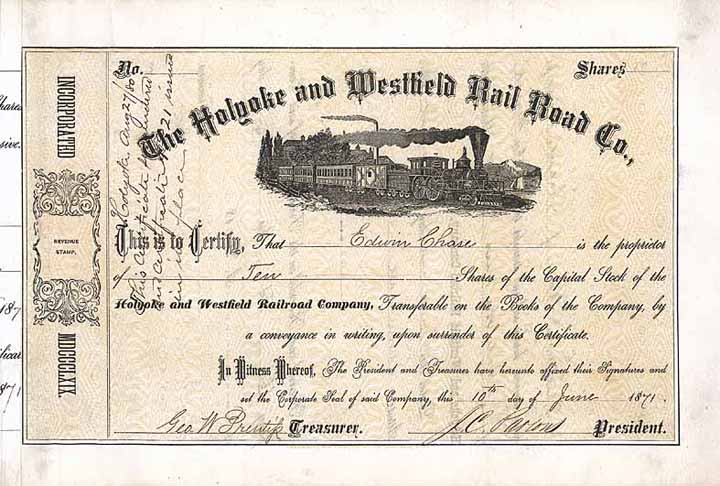 No.
Shares
The Holyoke and Westfield Rail Road Co.,
INCORPORATED
REVENUE
STAMP.
MDCCCLXIX.
Holyoke Aug 27/80
This certificate
and certificate No 21 issued
in its place
This is to Certify, That Edwin Chase is the proprietor
of Ten Shares of the Capital Stock of the
Holyoke and Westfield Railroad Company, Transferable on the Books of the Company, by
a conveyance in writing, upon surrender of this Certificate.
In Witness Whereof, The President and Treasurer have hereunto affixed their Signatures and
set the Corporate Seal of said Company, this 10th day of June 1871.
Geo. W. Prentiss Treasurer. J. C. Parsons President.